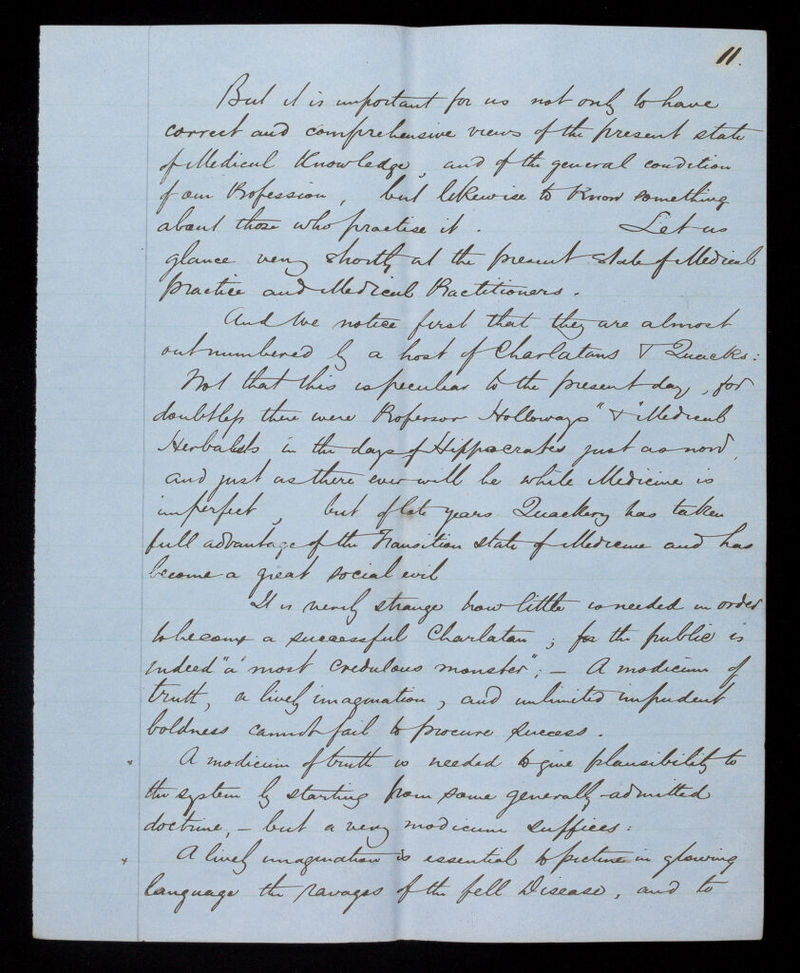 11.
But it is important for us not only to have
correct and comprehensive views of the present state
of Medical Knowledge, and of the general condition
of our Profession, but likewise to know something
about those who practise it. Let us
glance very shortly at the present state of Medical
Practice and Medical Practitioners.
And we notice first that they are almost
outnumbered by a host of Charlatans & Quacks:
Not that this is peculiar to the present day, for
doubtless there were Professor Holloways" & "Medical
Herbalists in the days of Hippocrates just as now,
and just as there ever will be while Medicine is
imperfect, but of late years Quackery has taken
full advantage of the Transition state of Medicine and has
become a great social evil
It is verily strange how little is needed in order
to become a successful Charlatan; for the public is
indeed "a most credulous monster"; — A modicum of
truth, a lively imagination, and unlimited impudent
boldness cannot fail to procure success.
* A modicum of truth is needed to give plausibility to
the system by starting from some generally-admitted
doctrine, — but a very modicum suffices:
* A lively imagination is essential to picture in glowing
language the ravages of the fell Disease, and to